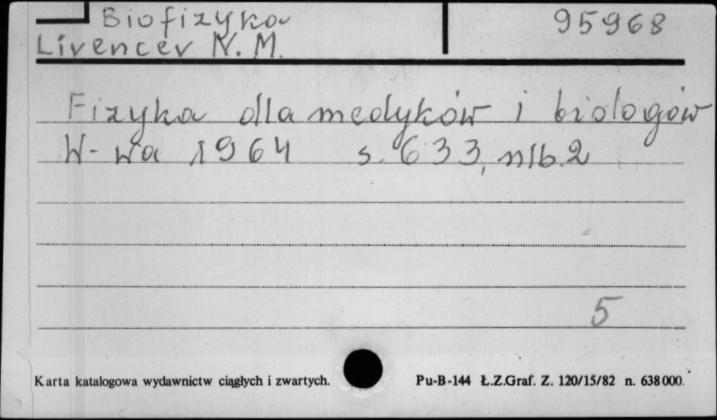 Biofizyka 95968
Livencev N. M.
Fizyka dla medyków i biologów
W-wa 1964 s. 633, nlb. 2
5
Karta katalogowa wydawnictw ciągłych i zwartych. Pu-B-144 Ł.Z.Graf. Z. 120/15/82 n. 638000.